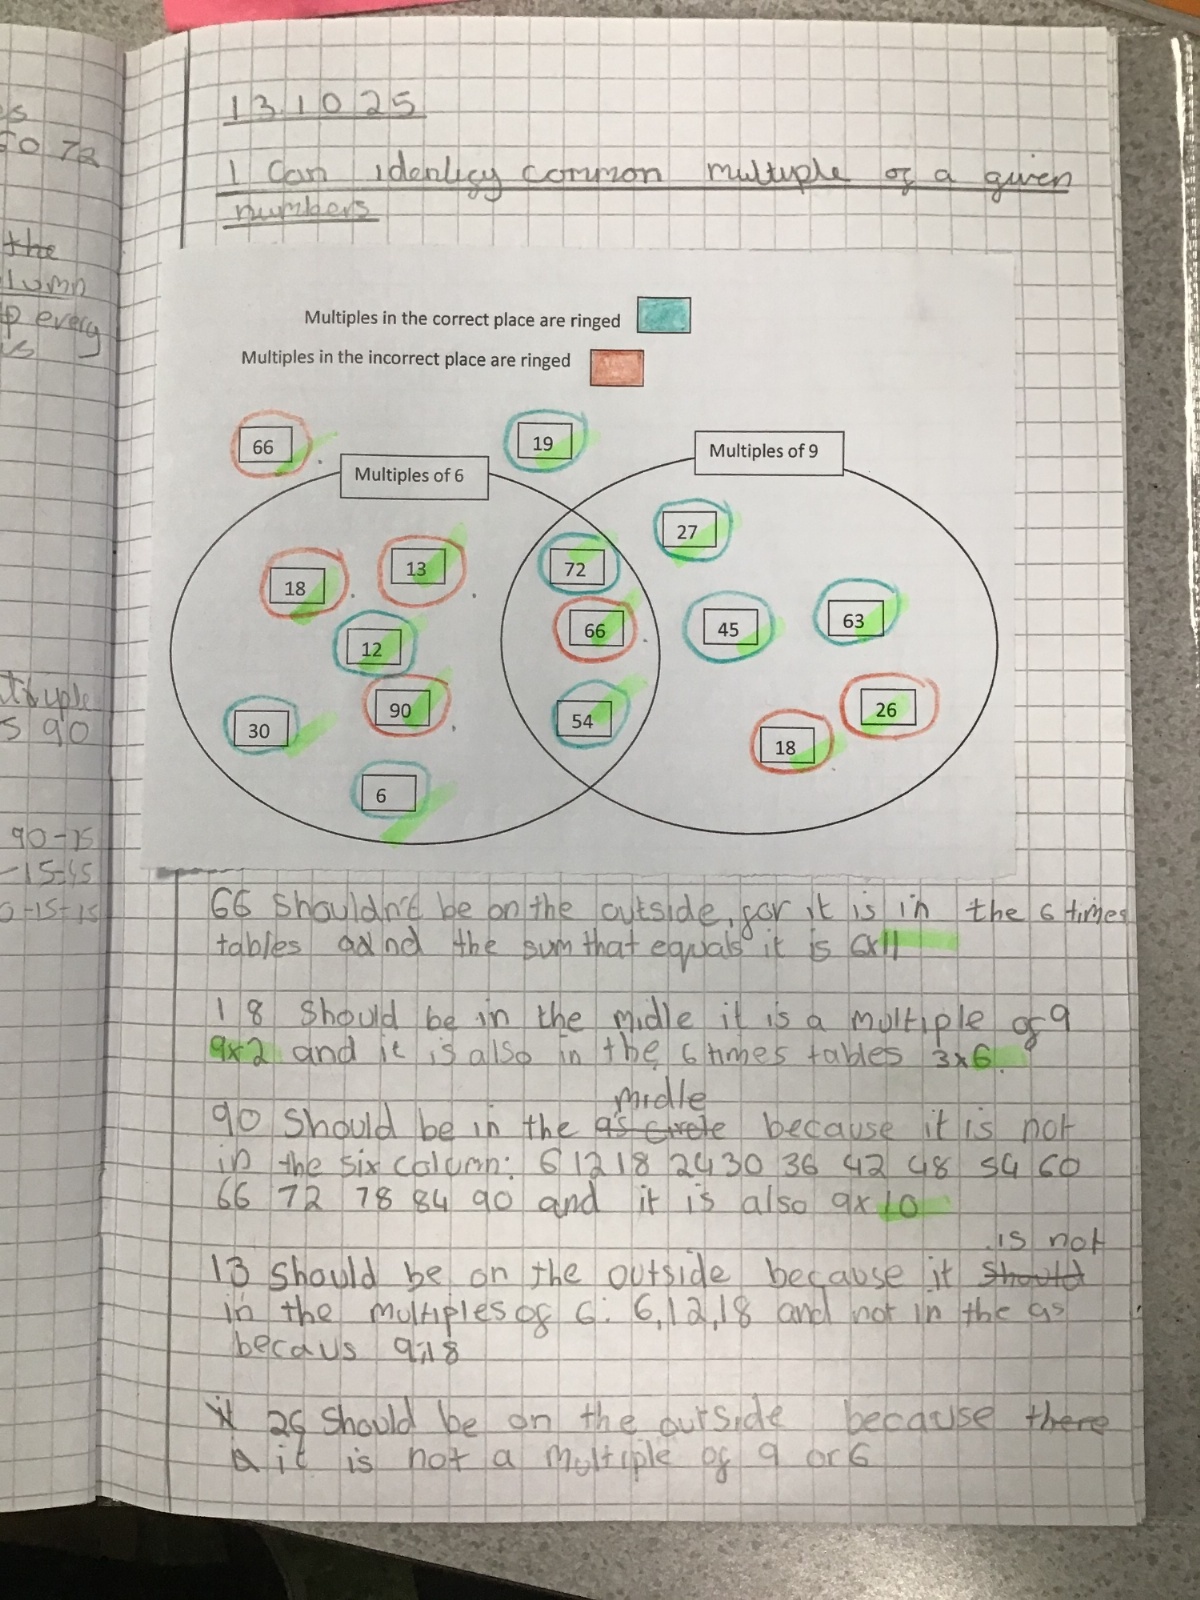 es
50 72
the
lumn
p every
is
tiuple
s 90
90-75
-15=45
0-15=15
131025
I Can identify common multiple of a given
numbers
Multiples in the correct place are ringed
Multiples in the incorrect place are ringed
66
19
Multiples of 6
Multiples of 9
27
18
13
72
12
66
45
63
30
90
54
18
26
6
66 shouldn't be on the outside, for it is in the 6 times
tables adnd the sum that equals it is 6x11
18 should be in the midle it is a multiple of 9
9x2 and it is also in the 6 times tables 3x6.
midle
90 should be in the 9s circle because it is not
in the six column: 6 12 18 24 30 36 42 48 54 60
66 72 78 84 90 and it is also 9x10
is not
13 should be on the outside because it should
in the multiples of 6: 6,12,18 and not in the 9s
becaus 9,18
it 26 should be on the outside because there
a it is not a multiple of 9 or 6